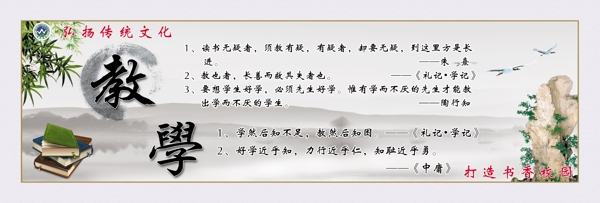 弘扬传统文化
教
學
1、读书无疑者，须教有疑，有疑者，却要无疑，到这里方是长
进。 ——朱 熹
2、教也者，长善而救其失者也。 ——《礼记·学记》
3、要想学生好学，必须先生好学。惟有学而不厌的先生才能教
出学而不厌的学生。 ——陶行知
1、学然后知不足，教然后知困 ——《礼记·学记》
2、好学近乎知，力行近乎仁，知耻近乎勇。
——《中庸》
打造书香校园